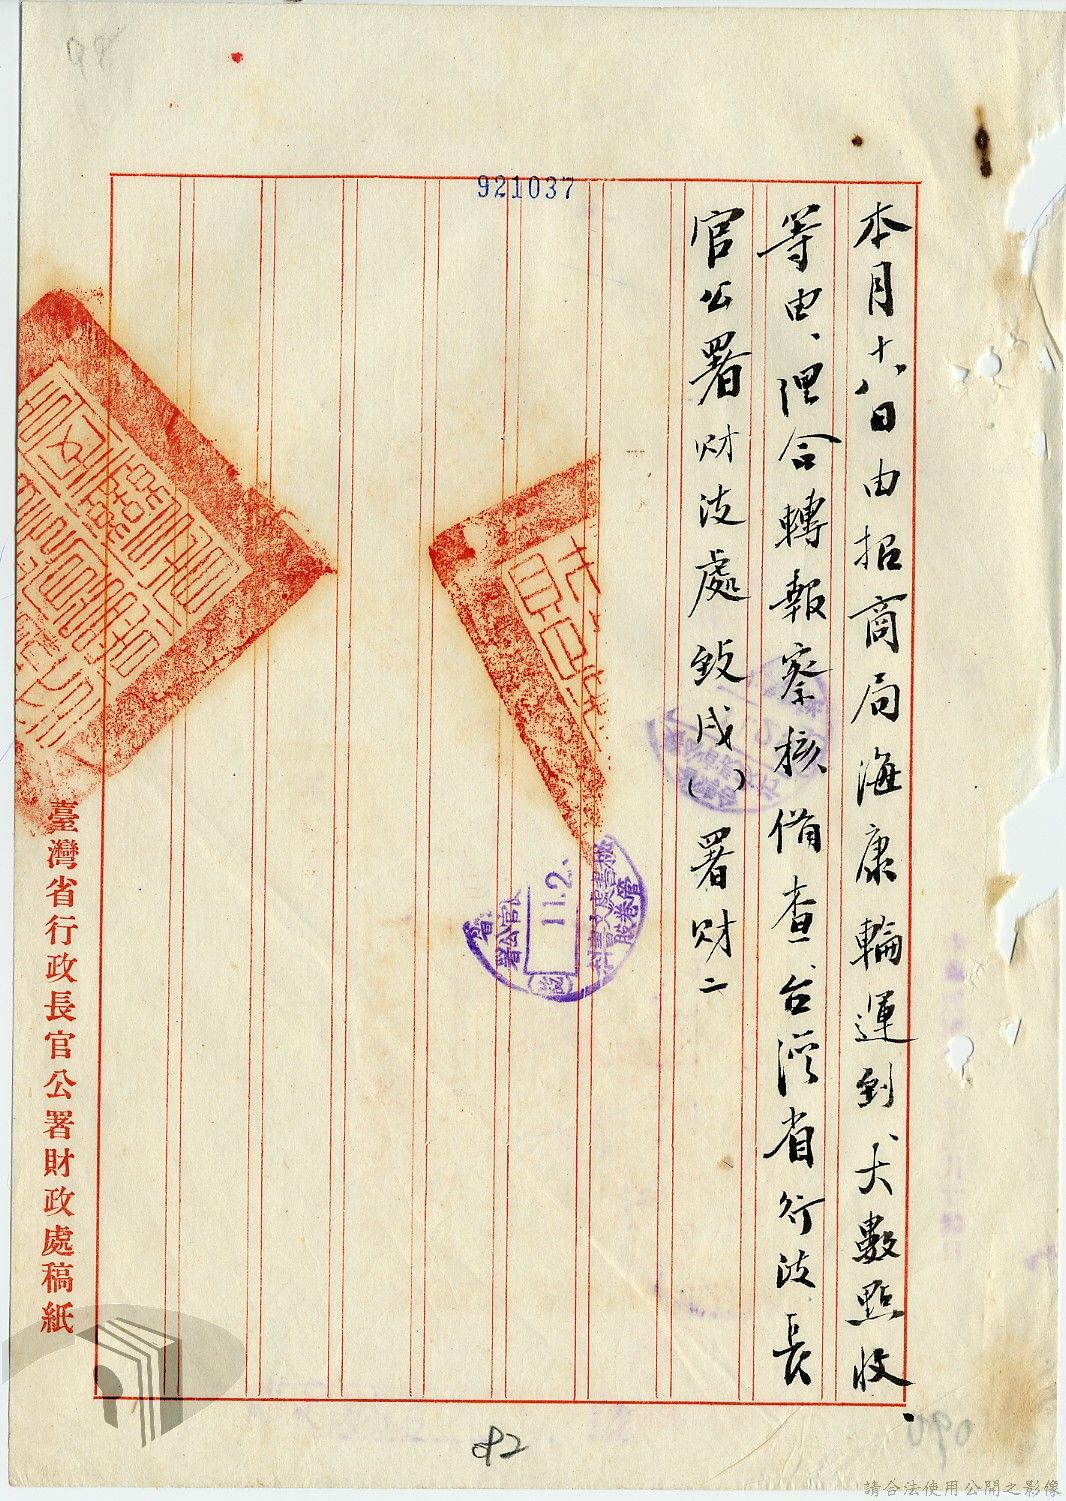 921037
本月十八日由招商局海康輪運到大數點收
等由、理合轉報察核備查、台湾省行政長
官公署財政處致戌( )署財二
11.2.
臺灣省行政長官公署財政處稿紙
92
請合法使用公開之影像